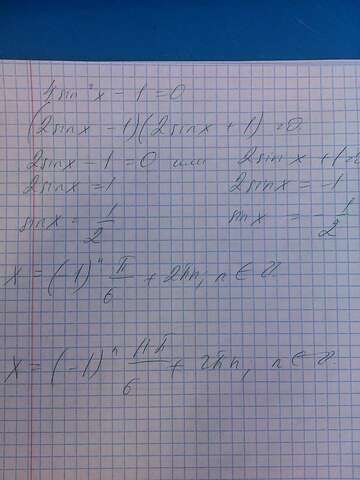 4sin²x - 1 = 0
(2sinx - 1)(2sinx + 1) = 0
2sinx - 1 = 0 или 2sinx + 1 = 0
2sinx = 1 2sinx = -1
sinx = 1/2 sinx = -1/2
x = (-1)ⁿ π/6 + 2πn, n ∈ Z
x = (-1)ⁿ 11π/6 + 2πn, n ∈ Z